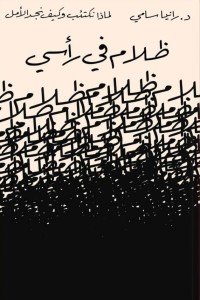 د. رانيا سامي لماذا نكتئب وكيف نجد الأمل
ظلام في رأسي